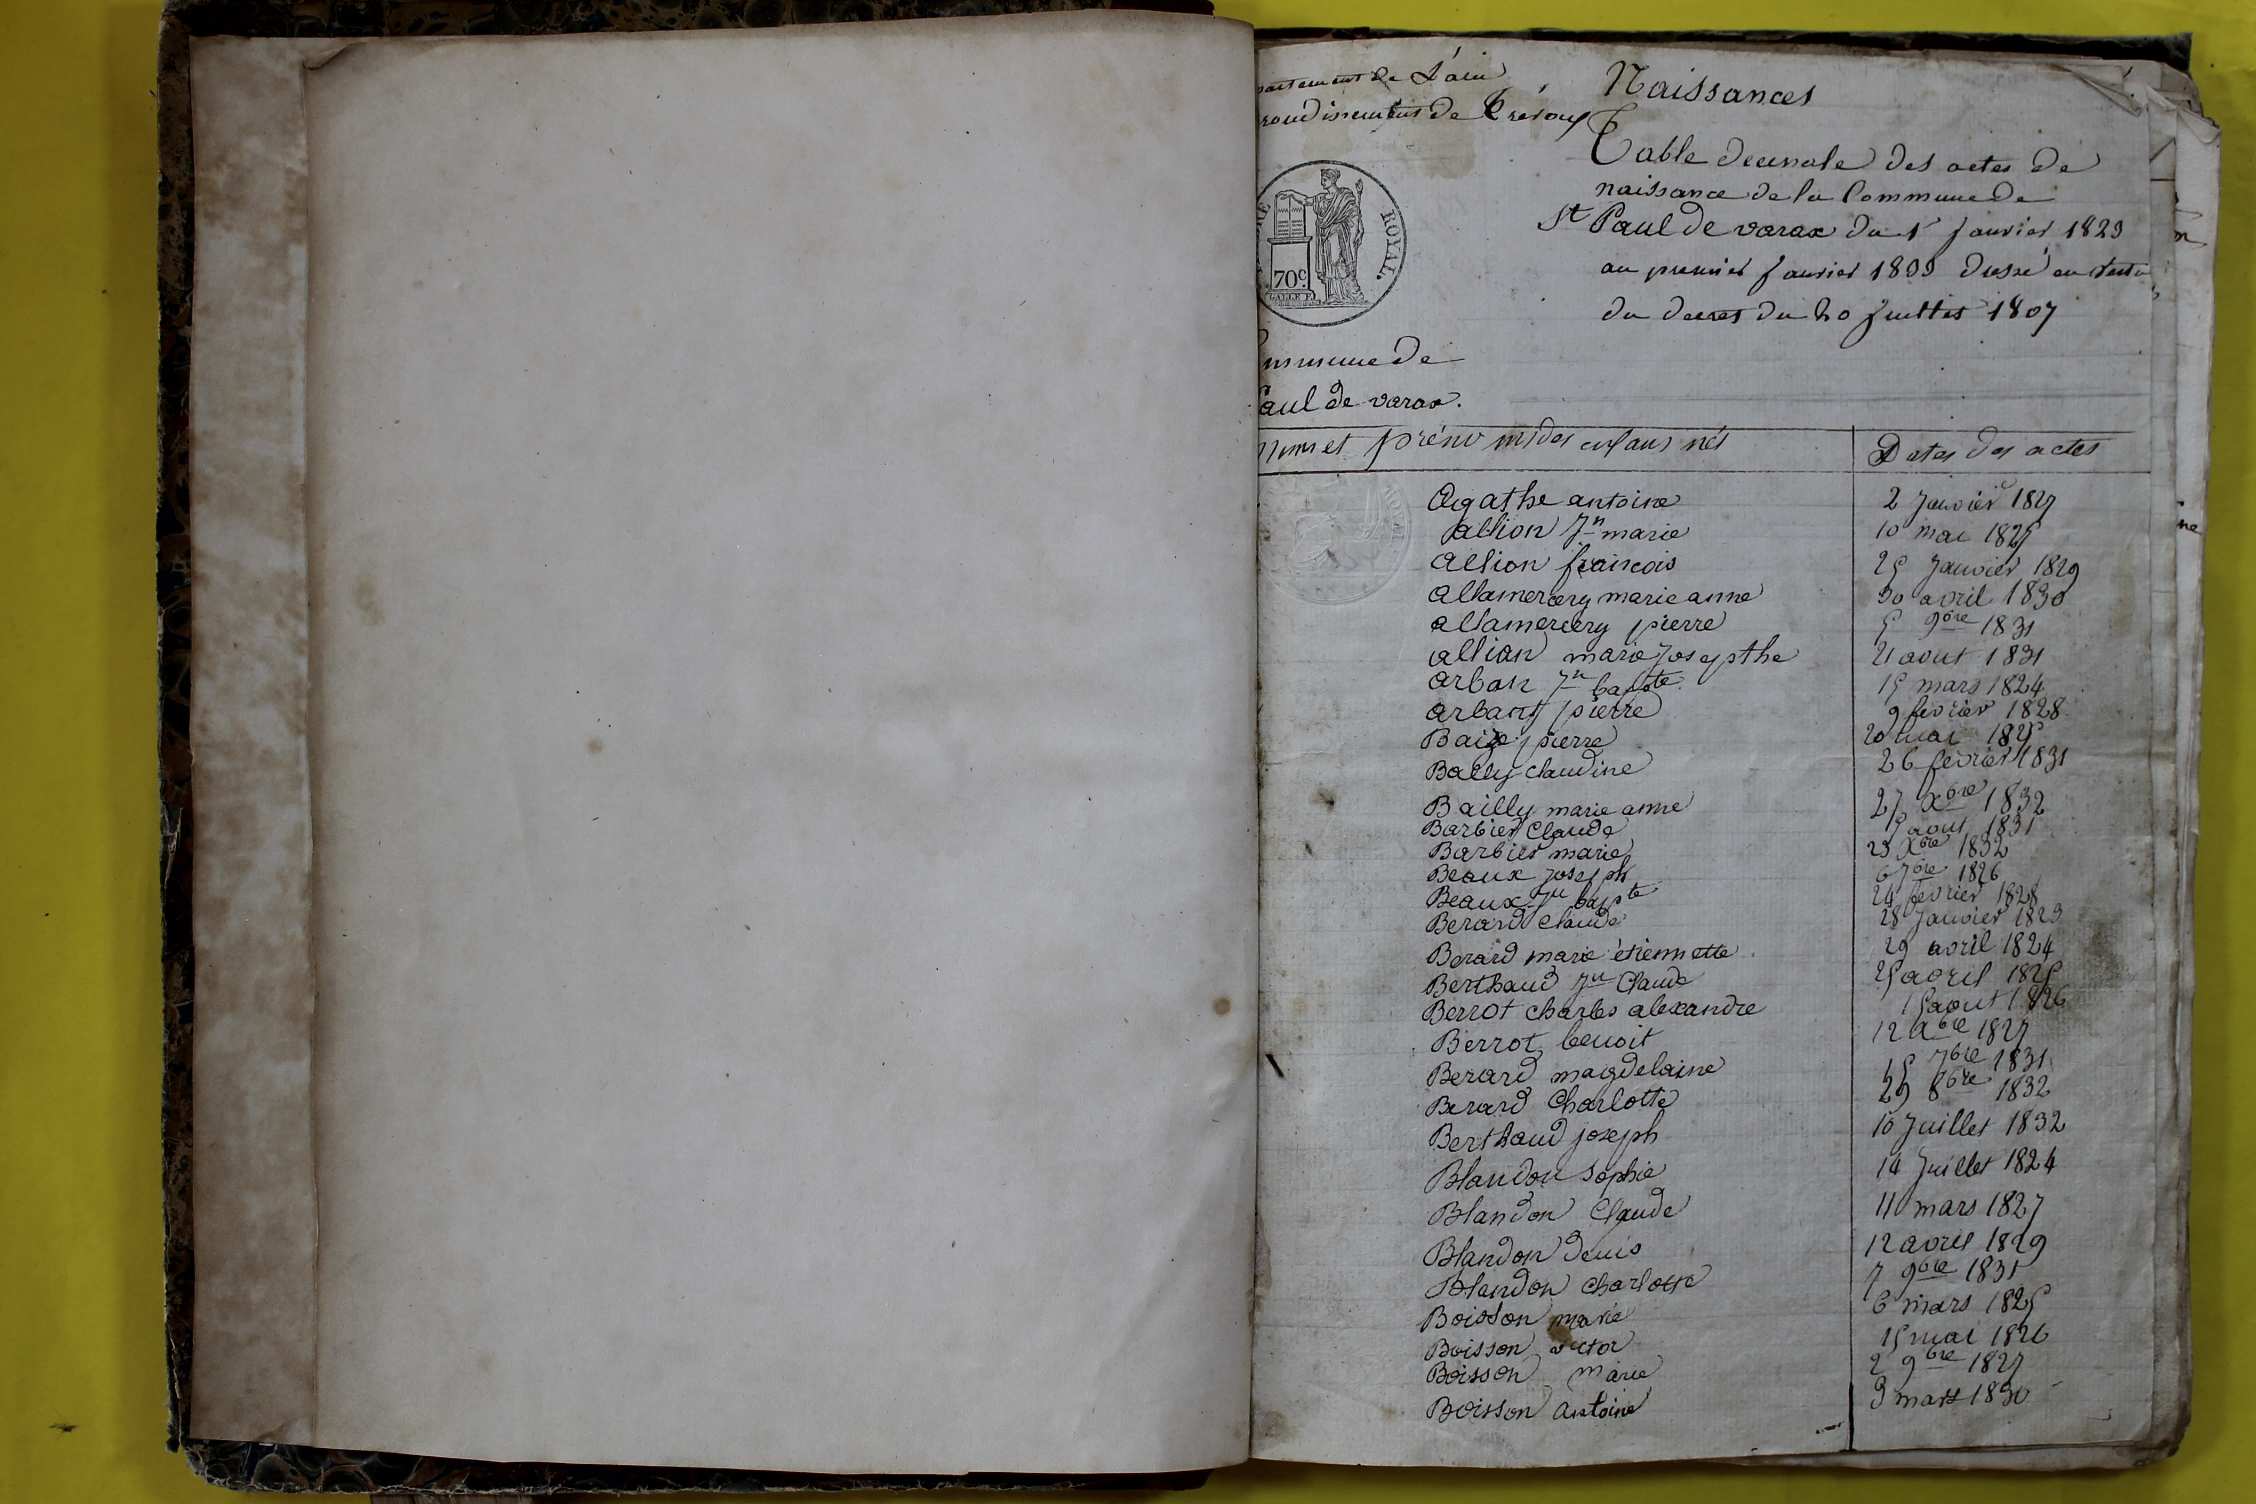 partement de L'ain
rondissement de Trévoux
Naissances
Table decennale des actes de
naissance de la Commune de
St Paul de varax du 1er janvier 1823
au premier janvier 1833 dressé en
du decret du 20 juillet 1807
ROYAL.
70C.
mmune de
Paul de varax.
Noms et prénoms des enfans nés
Dates des actes
Agathe antoine 2 Janvier 1827
Allion Jn marie 10 mai 1825
Allion francois 25 Janvier 1829
Allamercery marie anne 30 avril 1830
allamercery pierre 5 9bre 1831
allian marie Josepthe 21 aout 1831
Arban Jn bapte 15 mars 1824
Arbant pierre 9 fevrier 1828
Baize pierre 20 mai 1825
Bally claudine 26 fevrier 1831
Bailly marie anne 27 Xbre 1832
Barbier Claude 7 aout 1831
Barbier marie 23 Xbre 1832
Beaux Joseph 6 7bre 1826
Beaux Jn bapte 24 fevrier 1828
Berard Claude 28 Janvier 1823
Berard marie étiennette 29 avril 1824
Berthaud Jn Claude 25 avril 1825
Berrot Charles alexandre 15 aout 1826
Berrot benoit 12 1827
Berard magdelaine 15 7bre 1831
Berard Charlotte 29 8bre 1832
Berthaud joseph 10 Juillet 1832
Blandon Sophie 14 Juillet 1824
Blandon Claude 11 mars 1827
Blandon Denis 12 avril 1829
Blandon Charlotte 7 9bre 1831
Boisson marie 6 mars 1825
Boisson victor 15 mai 1826
Boisson marie 2 9bre 1827
Boisson Antoine 3 mars 1830